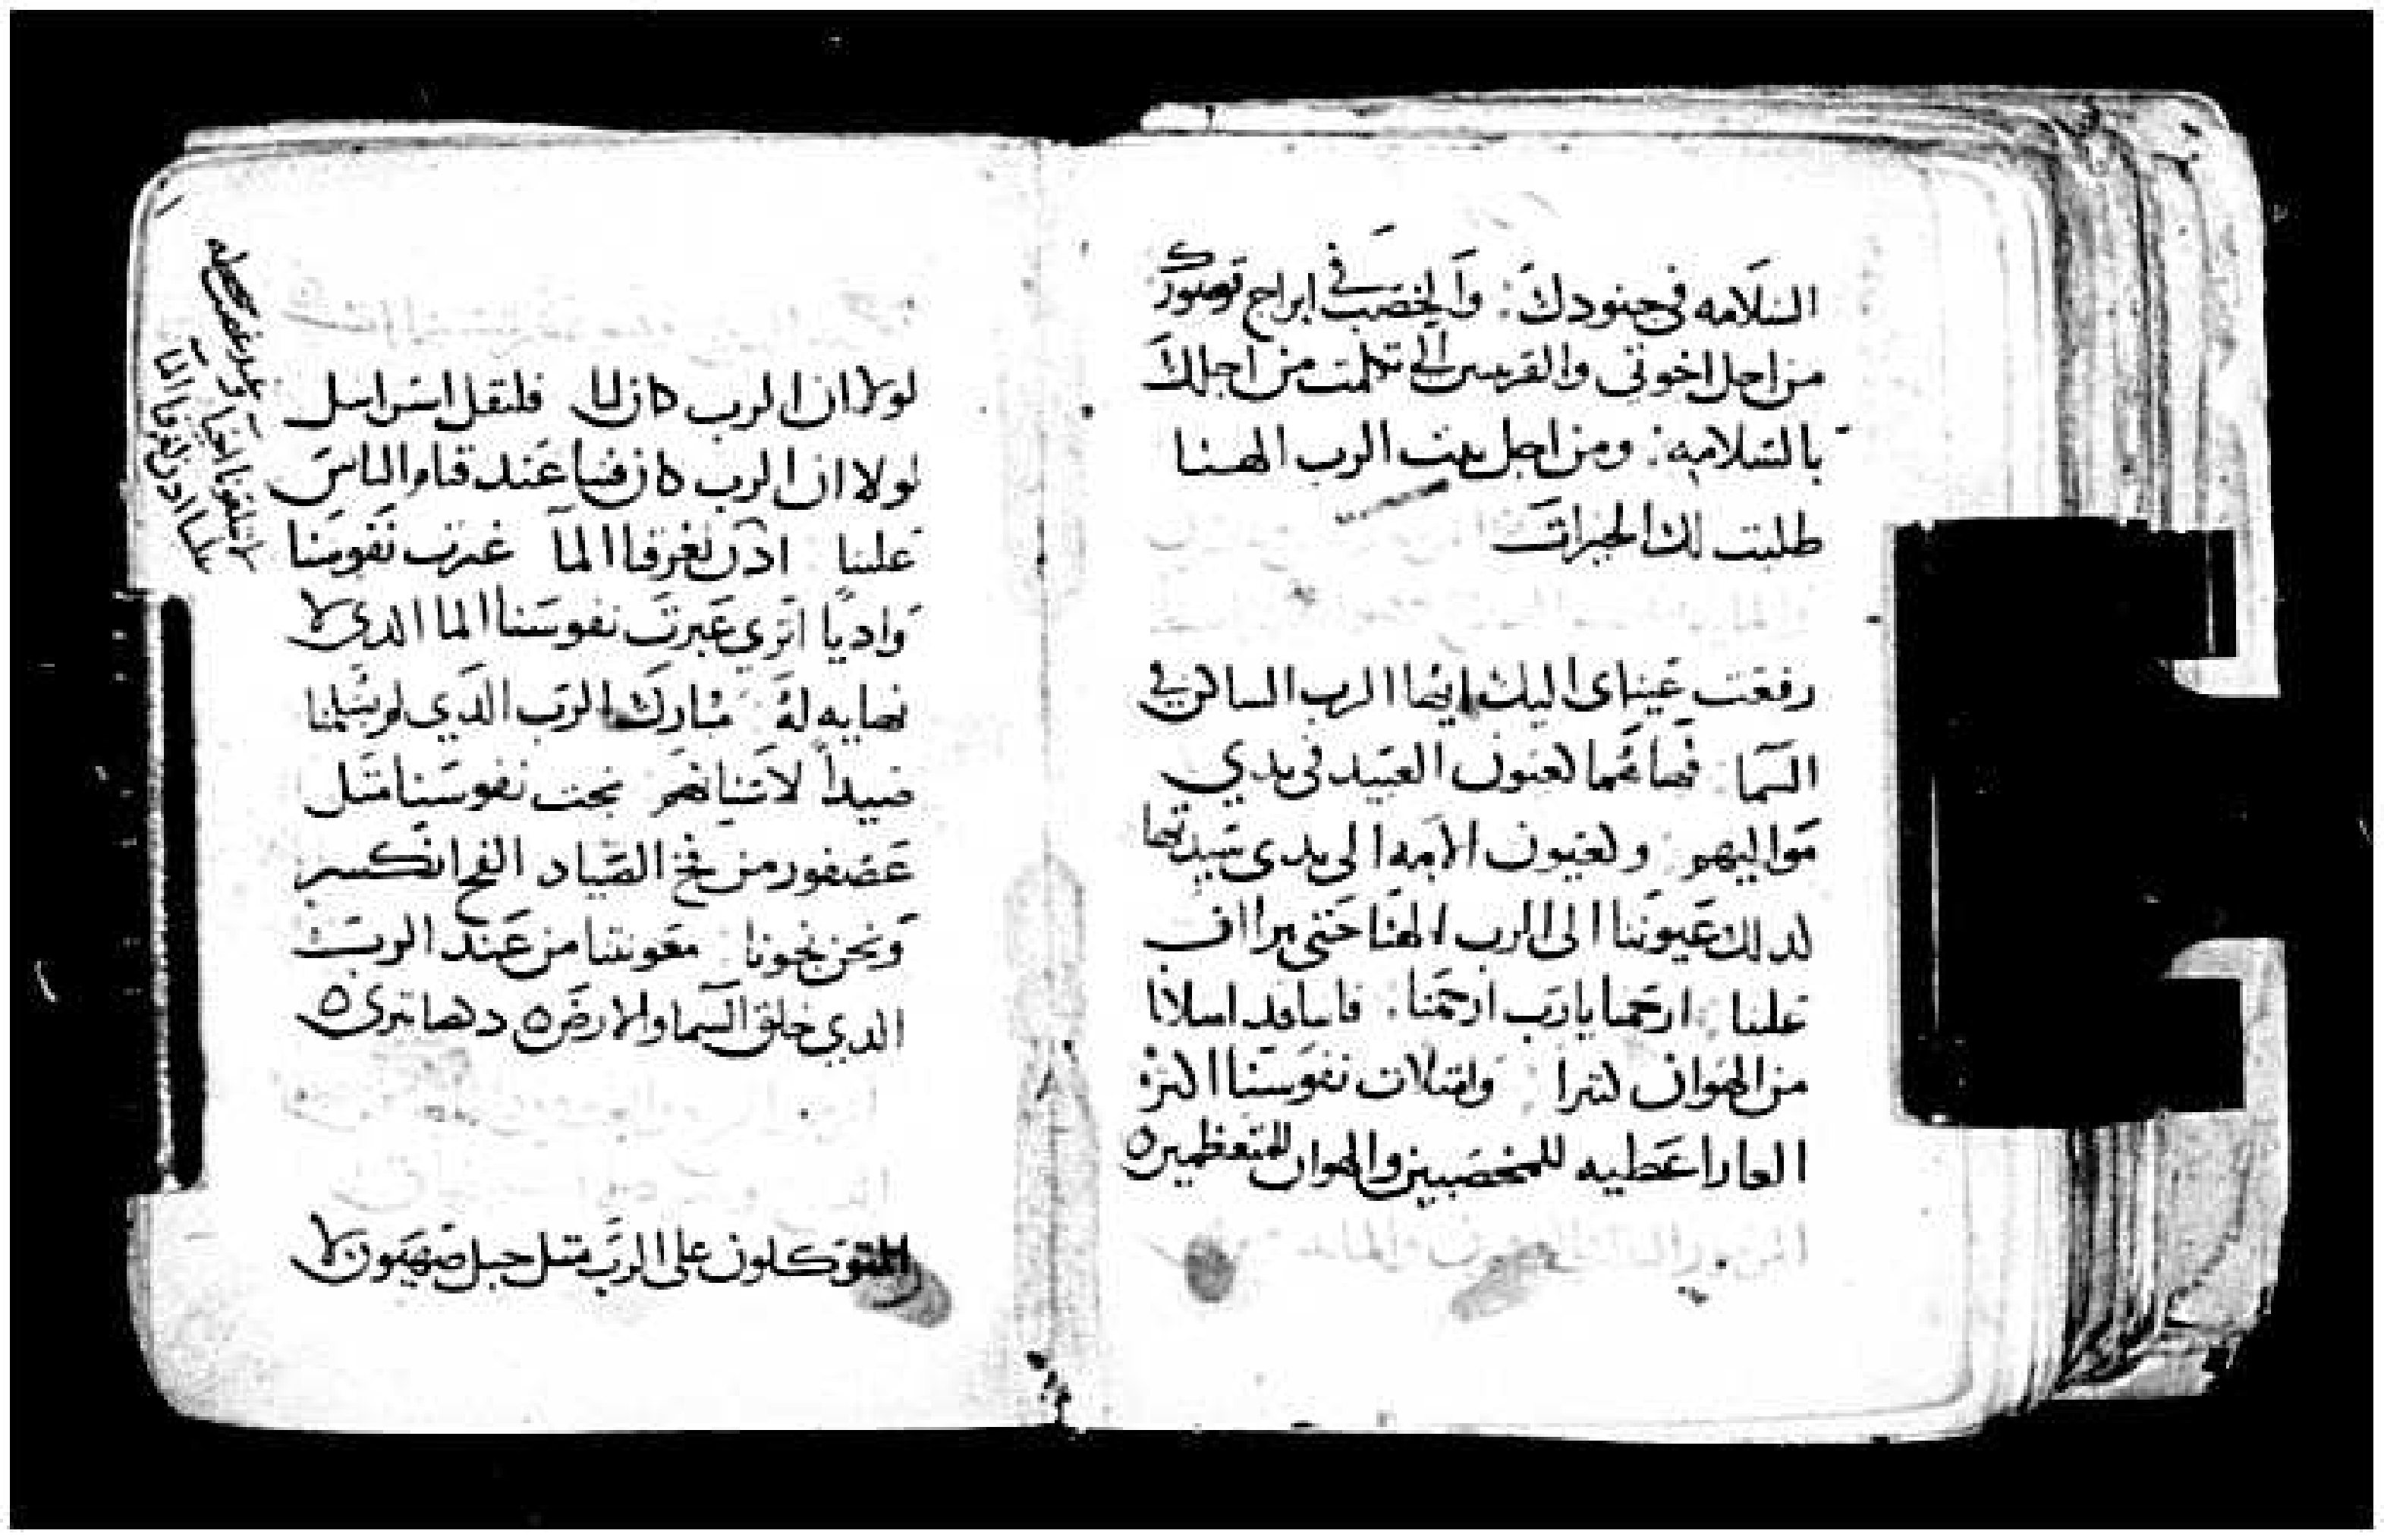 السلامه في جنودك: والخصب في ابراج قصورك
من اجل اخوتي والقريبين الى تكلمت من اجلك
بالسلامه: ومن اجل بيت الرب الهنا
طلبت لك الخيرات
رفعت عيناى اليك ايها الرب الساكن في
السما: فها هما كعيون العبيد في يدي
مواليهم: وكعيون الامه الى يدى سيدتها
كدلك عيوننا الى الرب الهنا حتى يرااف
علينا: ارحمنا يارب ارحمنا: فاننا قد امتلانا
من الهوان كثيرا: وامتلات نفوسنا اكثر
العار اعطيه للمخصبين والهوان للمتعظمين
المزمور الثالث والعشرون والمايه
لولا ان الرب كان لنا فليقل اسراييل
لولا ان الرب كان فينا عند قيام الناس
علينا ادن لغرقنا الما عبرت نفوسنا
واديا اترى عبرت نفوسنا الما الدى لا
نهايه له: مبارك الرب الذي لم يسلمنا
صيداً لاسنانهم نجت نفوسنا متل
عصفور من فخ الصياد الفخ انكسر
ونحن نجونا: معونتنا من عند الرب
الدي خلق السما والارض
المتوكلون على الرب متل جبل صهيون لا